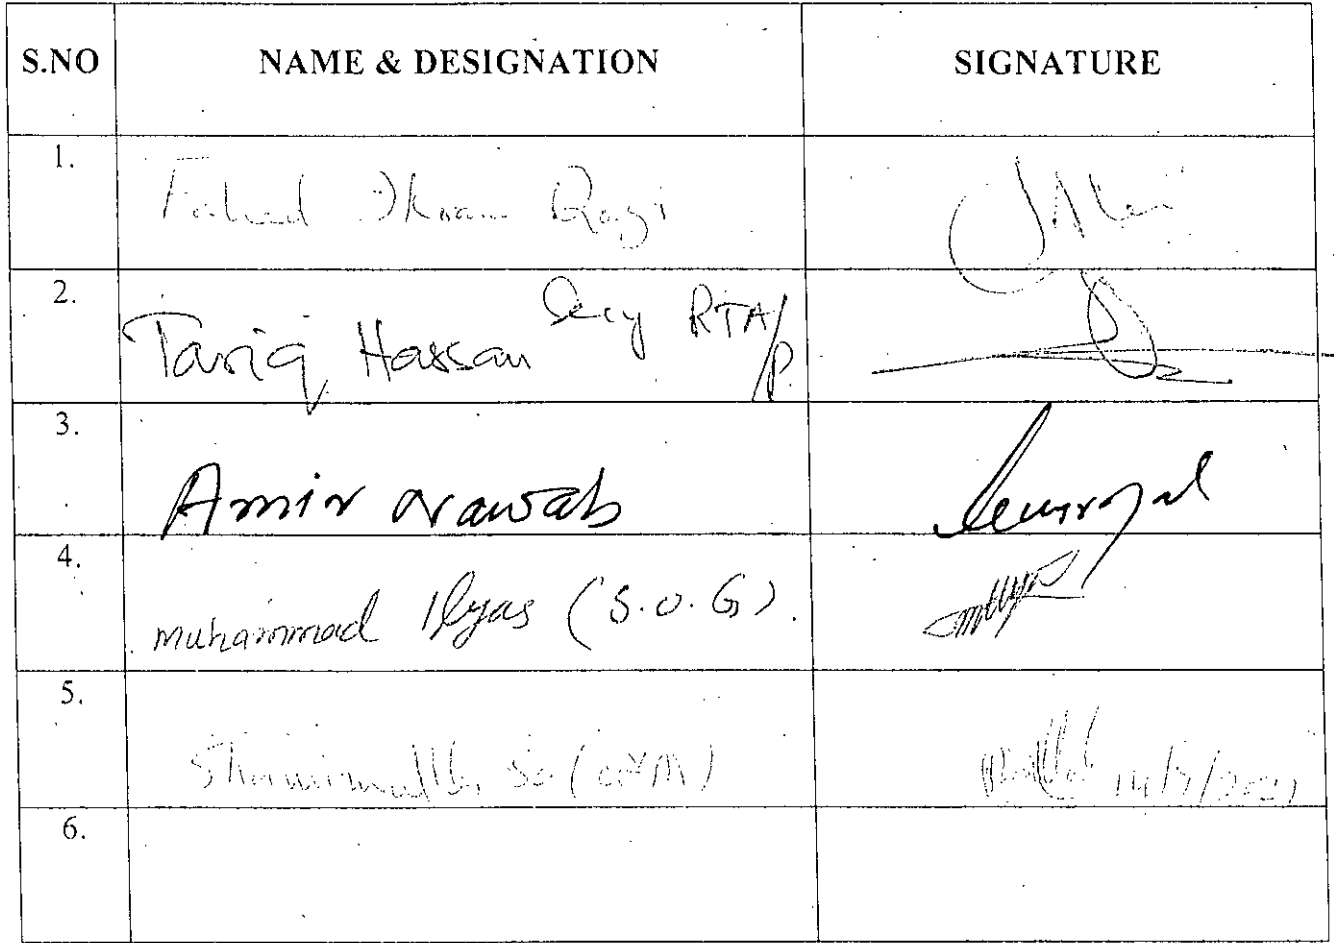 S.NO NAME & DESIGNATION SIGNATURE
1. Fahad Ikram Qazi
2. Tariq Hassan Secy RTA/P.
3. Amir Nawab
4. Muhammad Ilyas (S.O.G).
5. So (O&M) 14/7/2021
6.